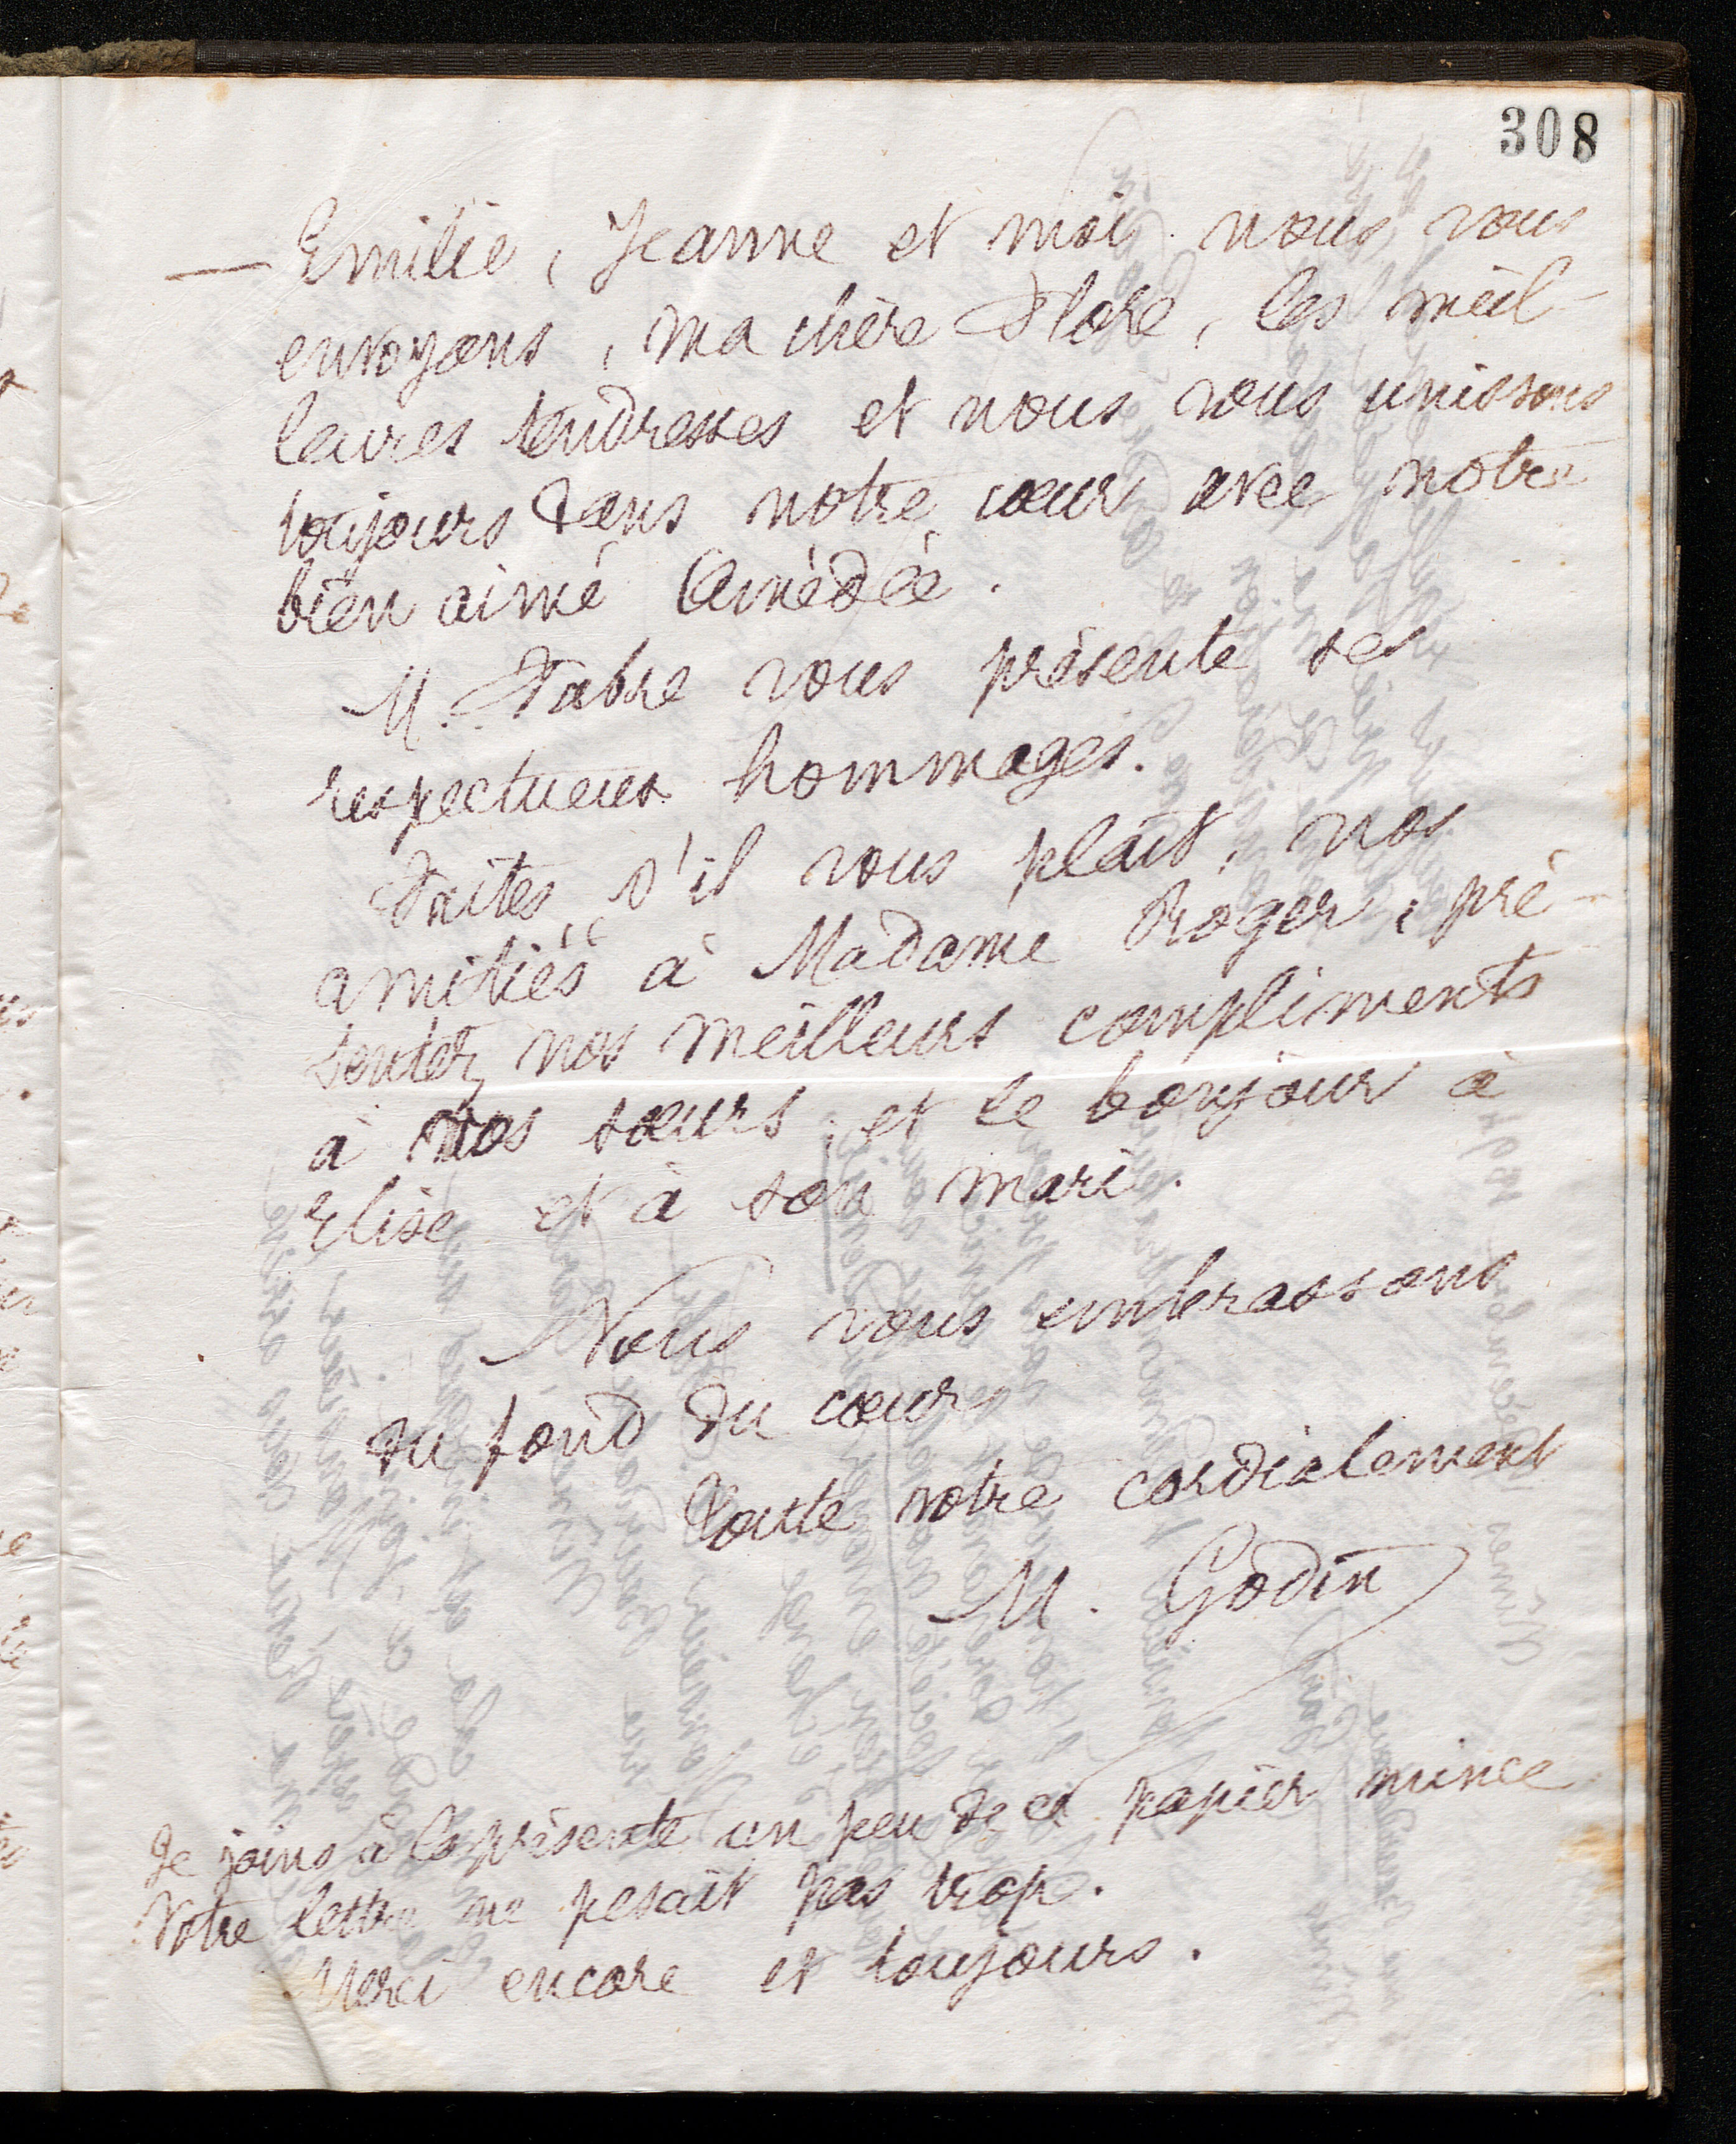 308
— Emilie, Jeanne et moi nous vous
envoyons, ma chère Flore, les meil-
leures tendresses et nous vous unissons
toujours dans notre cœur avec notre
bien aimé Amédée.
M. Fabre vous présente ses
respectueux hommages.
Faites, s'il vous plaît, nos
amitiés à Madame Roger, pré-
sentez nos meilleurs compliments
à vos sœurs, et le bonjour à
Elise et à son mari.
Nous vous embrassons
du fond du cœur
Toute votre cordialement
M. Godin
Je joins à la présente un peu de ce papier mince
Votre lettre ne pesait pas trop.
Merci encore et toujours.